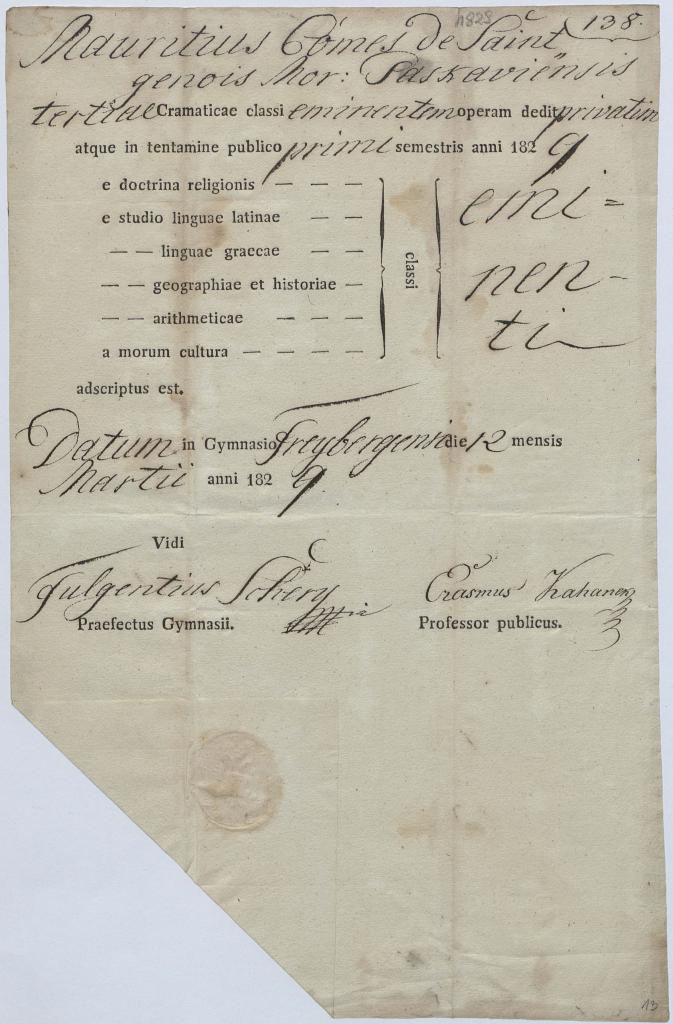 1829
138.
Mauritius Comes de Saint
genois Mor: Paskaviensis
tertiae Gramaticae classi eminentem operam dedit privatim
atque in tentamine publico primi semestris anni 1829
e doctrina religionis — — —
e studio linguae latinae — —
— — linguae graecae — —
— — geographiae et historiae —
— — arithmeticae — — —
a morum cultura — — — —
classi
emi=
nen-
ti
adscriptus est.
Datum in Gymnasio Freybergensi die 12 mensis
Martii anni 1829
Vidi
Fulgentius Schery
Erasmus Kahanek
Praefectus Gymnasii.
Professor publicus.
13